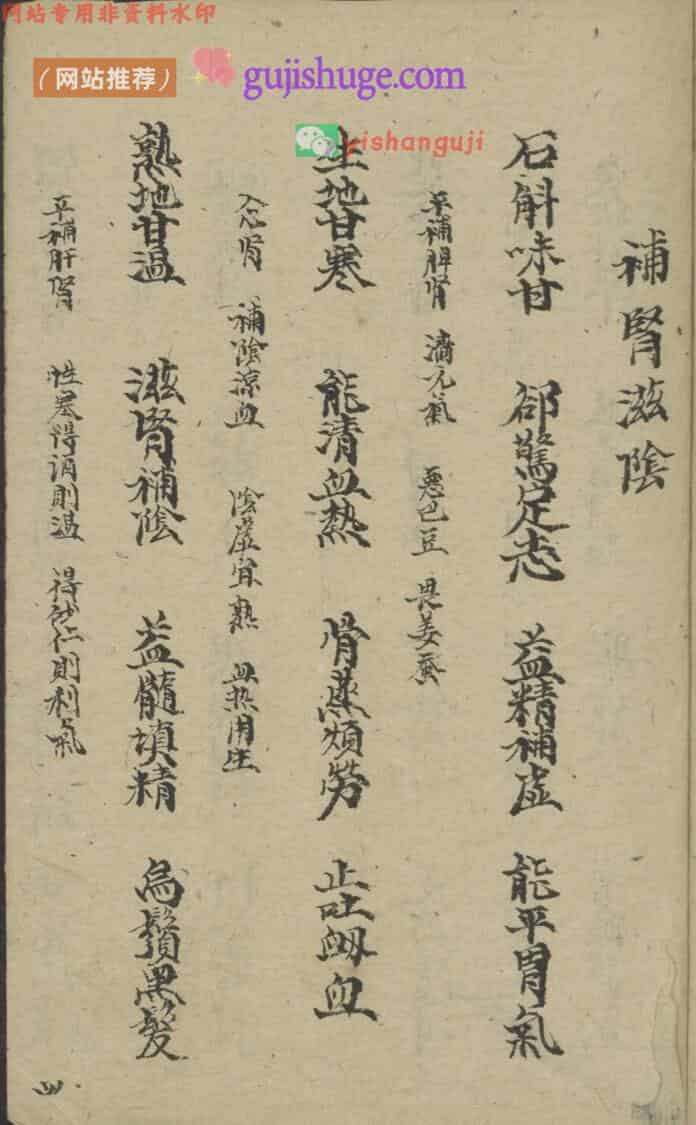 网站专用非资料水印
（网站推荐）
gujishuge.com
yishanguji
補腎滋陰
石斛味甘 卻驚定志 益精補虛 能平胃氣
平補脾肾 濇元氣 惡巴豆 畏姜蚕
生地甘寒 能清血熱 骨蒸煩勞 止吐衂血
入心肾 補陰凉血 陰虛宜熟 血热用生
熟地甘温 滋腎補陰 益髓填精 烏鬚黑髮
平補肝腎 性寒得酒則温 得砂仁則利氣